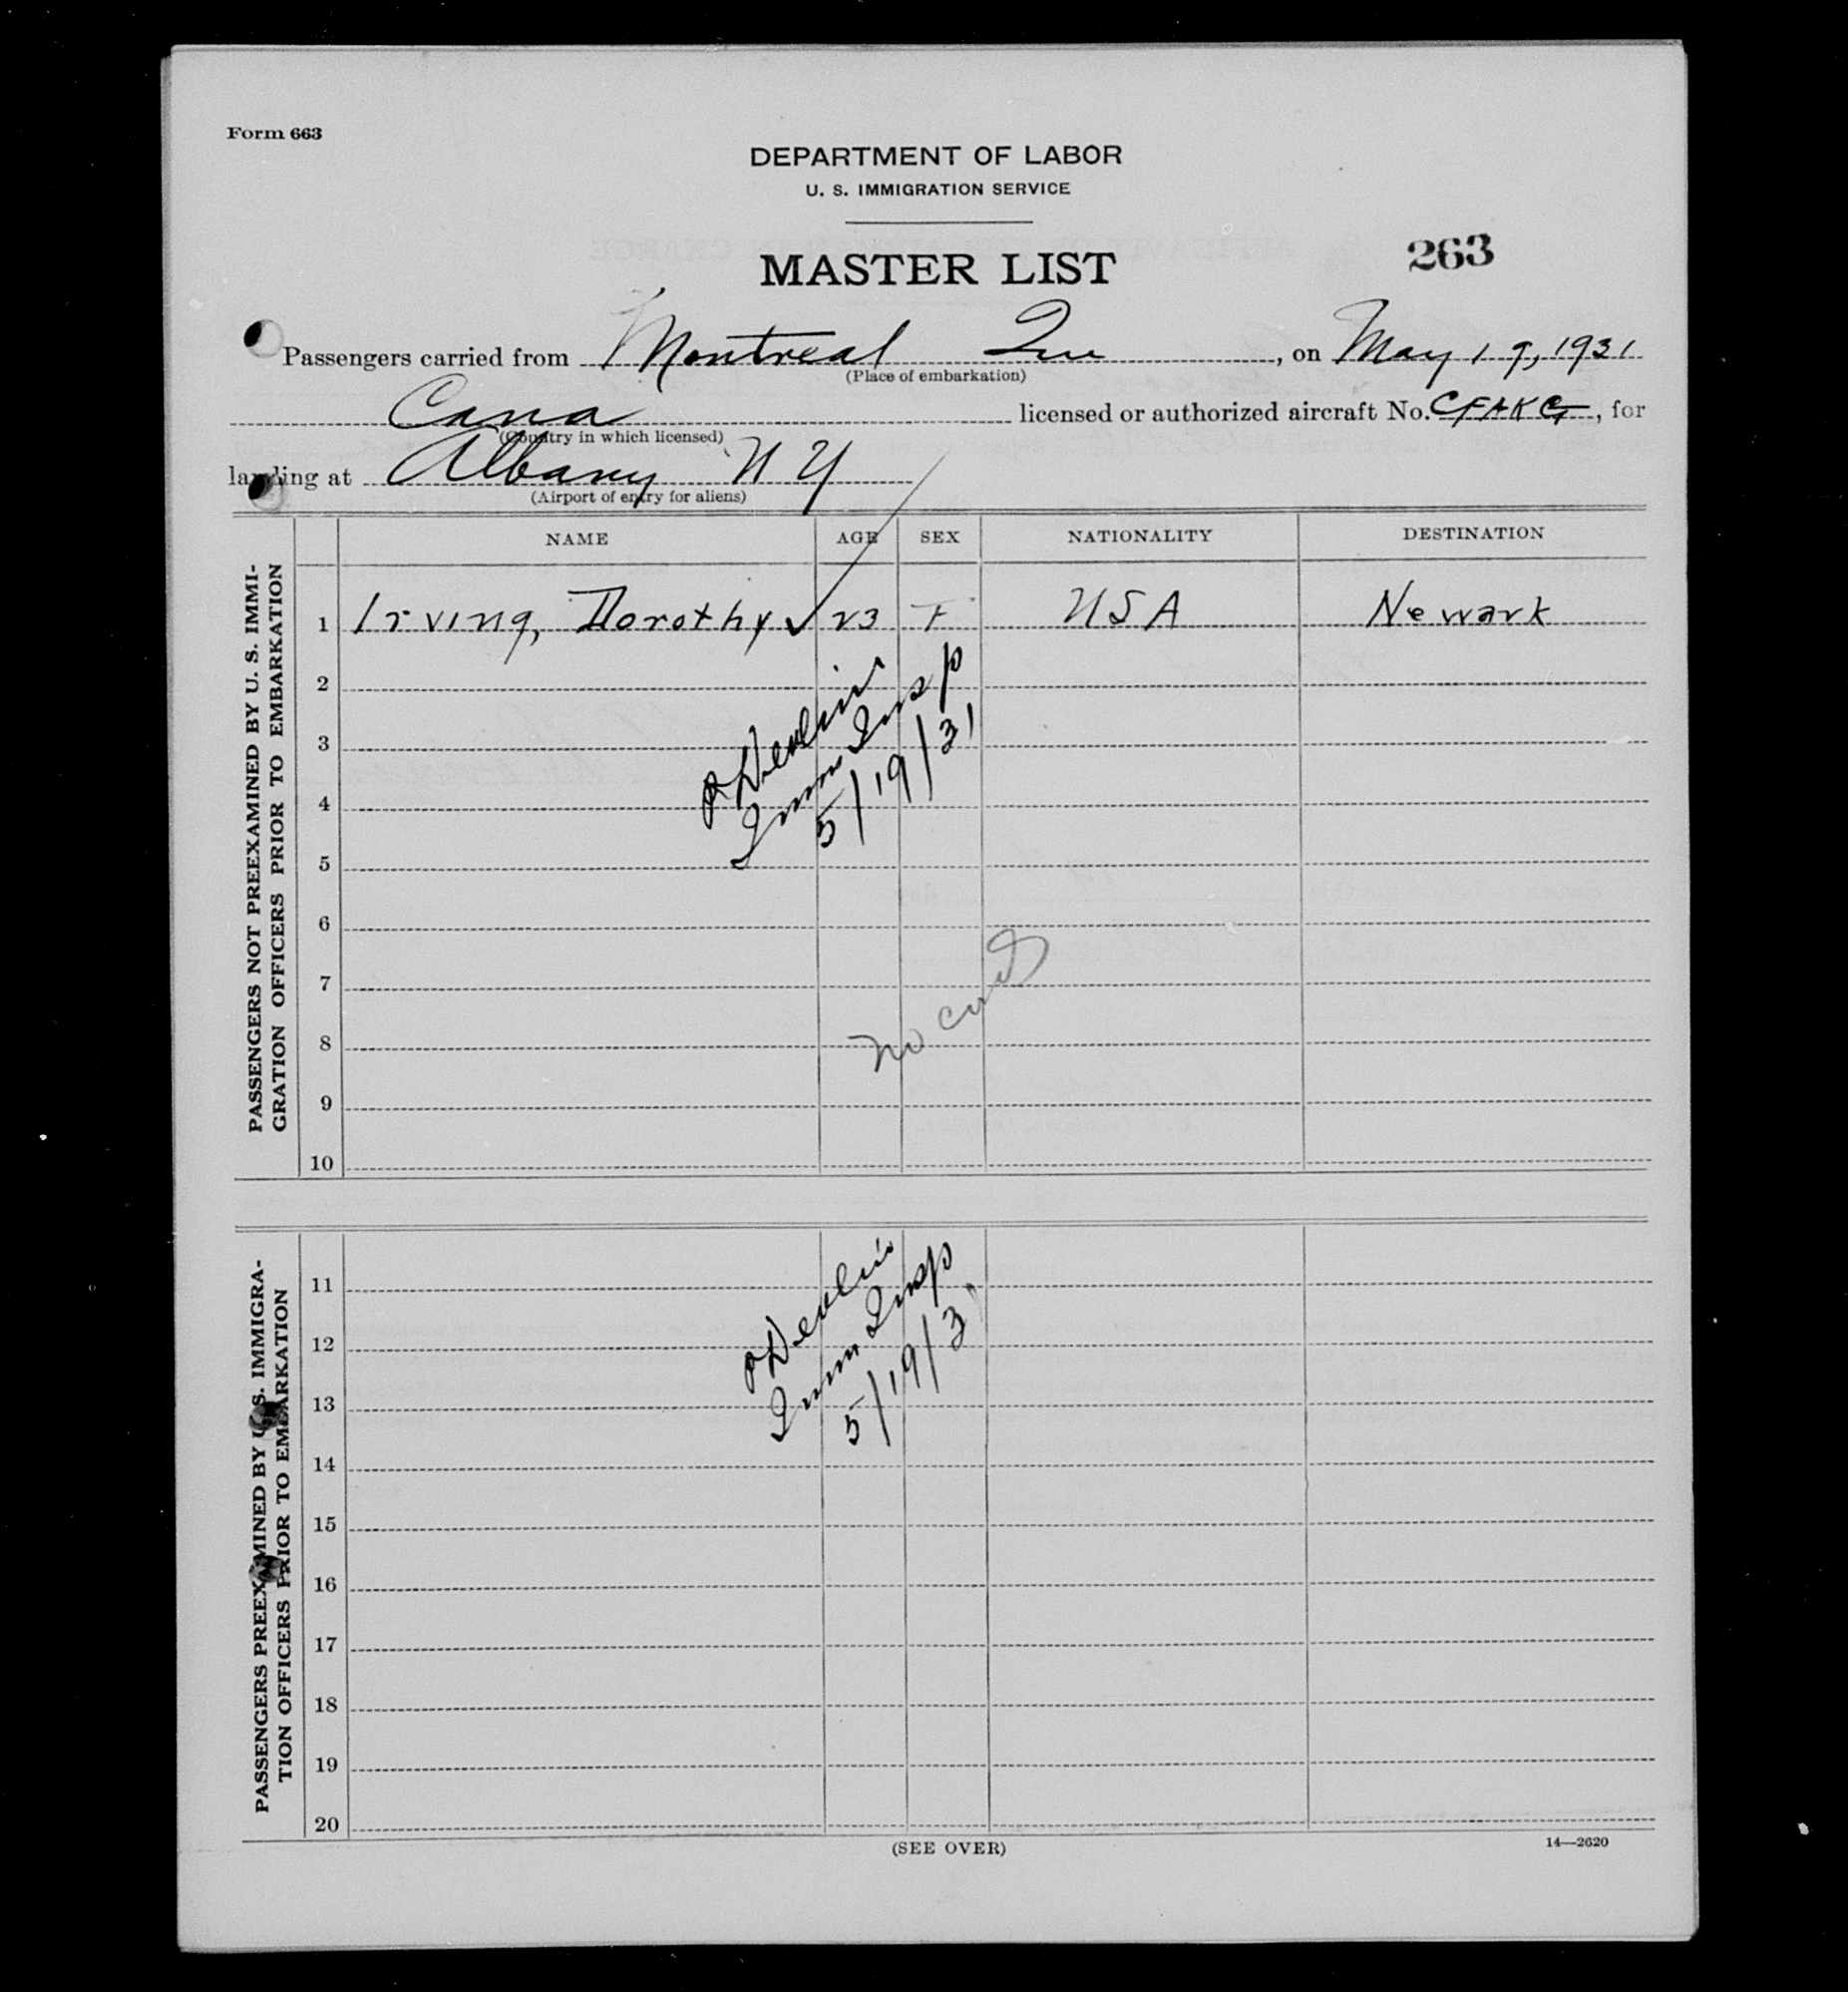 Form 663
DEPARTMENT OF LABOR
U. S. IMMIGRATION SERVICE
MASTER LIST
263
Passengers carried from Montreal Que, on May 19, 1931
(Place of embarkation)
Cana licensed or authorized aircraft No. CFAKG, for
(Country in which licensed)
landing at Albany N Y
(Airport of entry for aliens)
NAME AGE SEX NATIONALITY DESTINATION
PASSENGERS NOT PREEXAMINED BY U. S. IMMI-
GRATION OFFICERS PRIOR TO EMBARKATION
1 Irving, Dorothy ✓ 23 F USA Newark
2
3
4
5
6
7
8
9
10
Devlin
Imm Insp
5/19/31
no card
PASSENGERS PREEXAMINED BY U. S. IMMIGRA-
TION OFFICERS PRIOR TO EMBARKATION
11
12
13
14
15
16
17
18
19
20
Devlin
Imm Insp
5/19/31
(SEE OVER)
14—2620